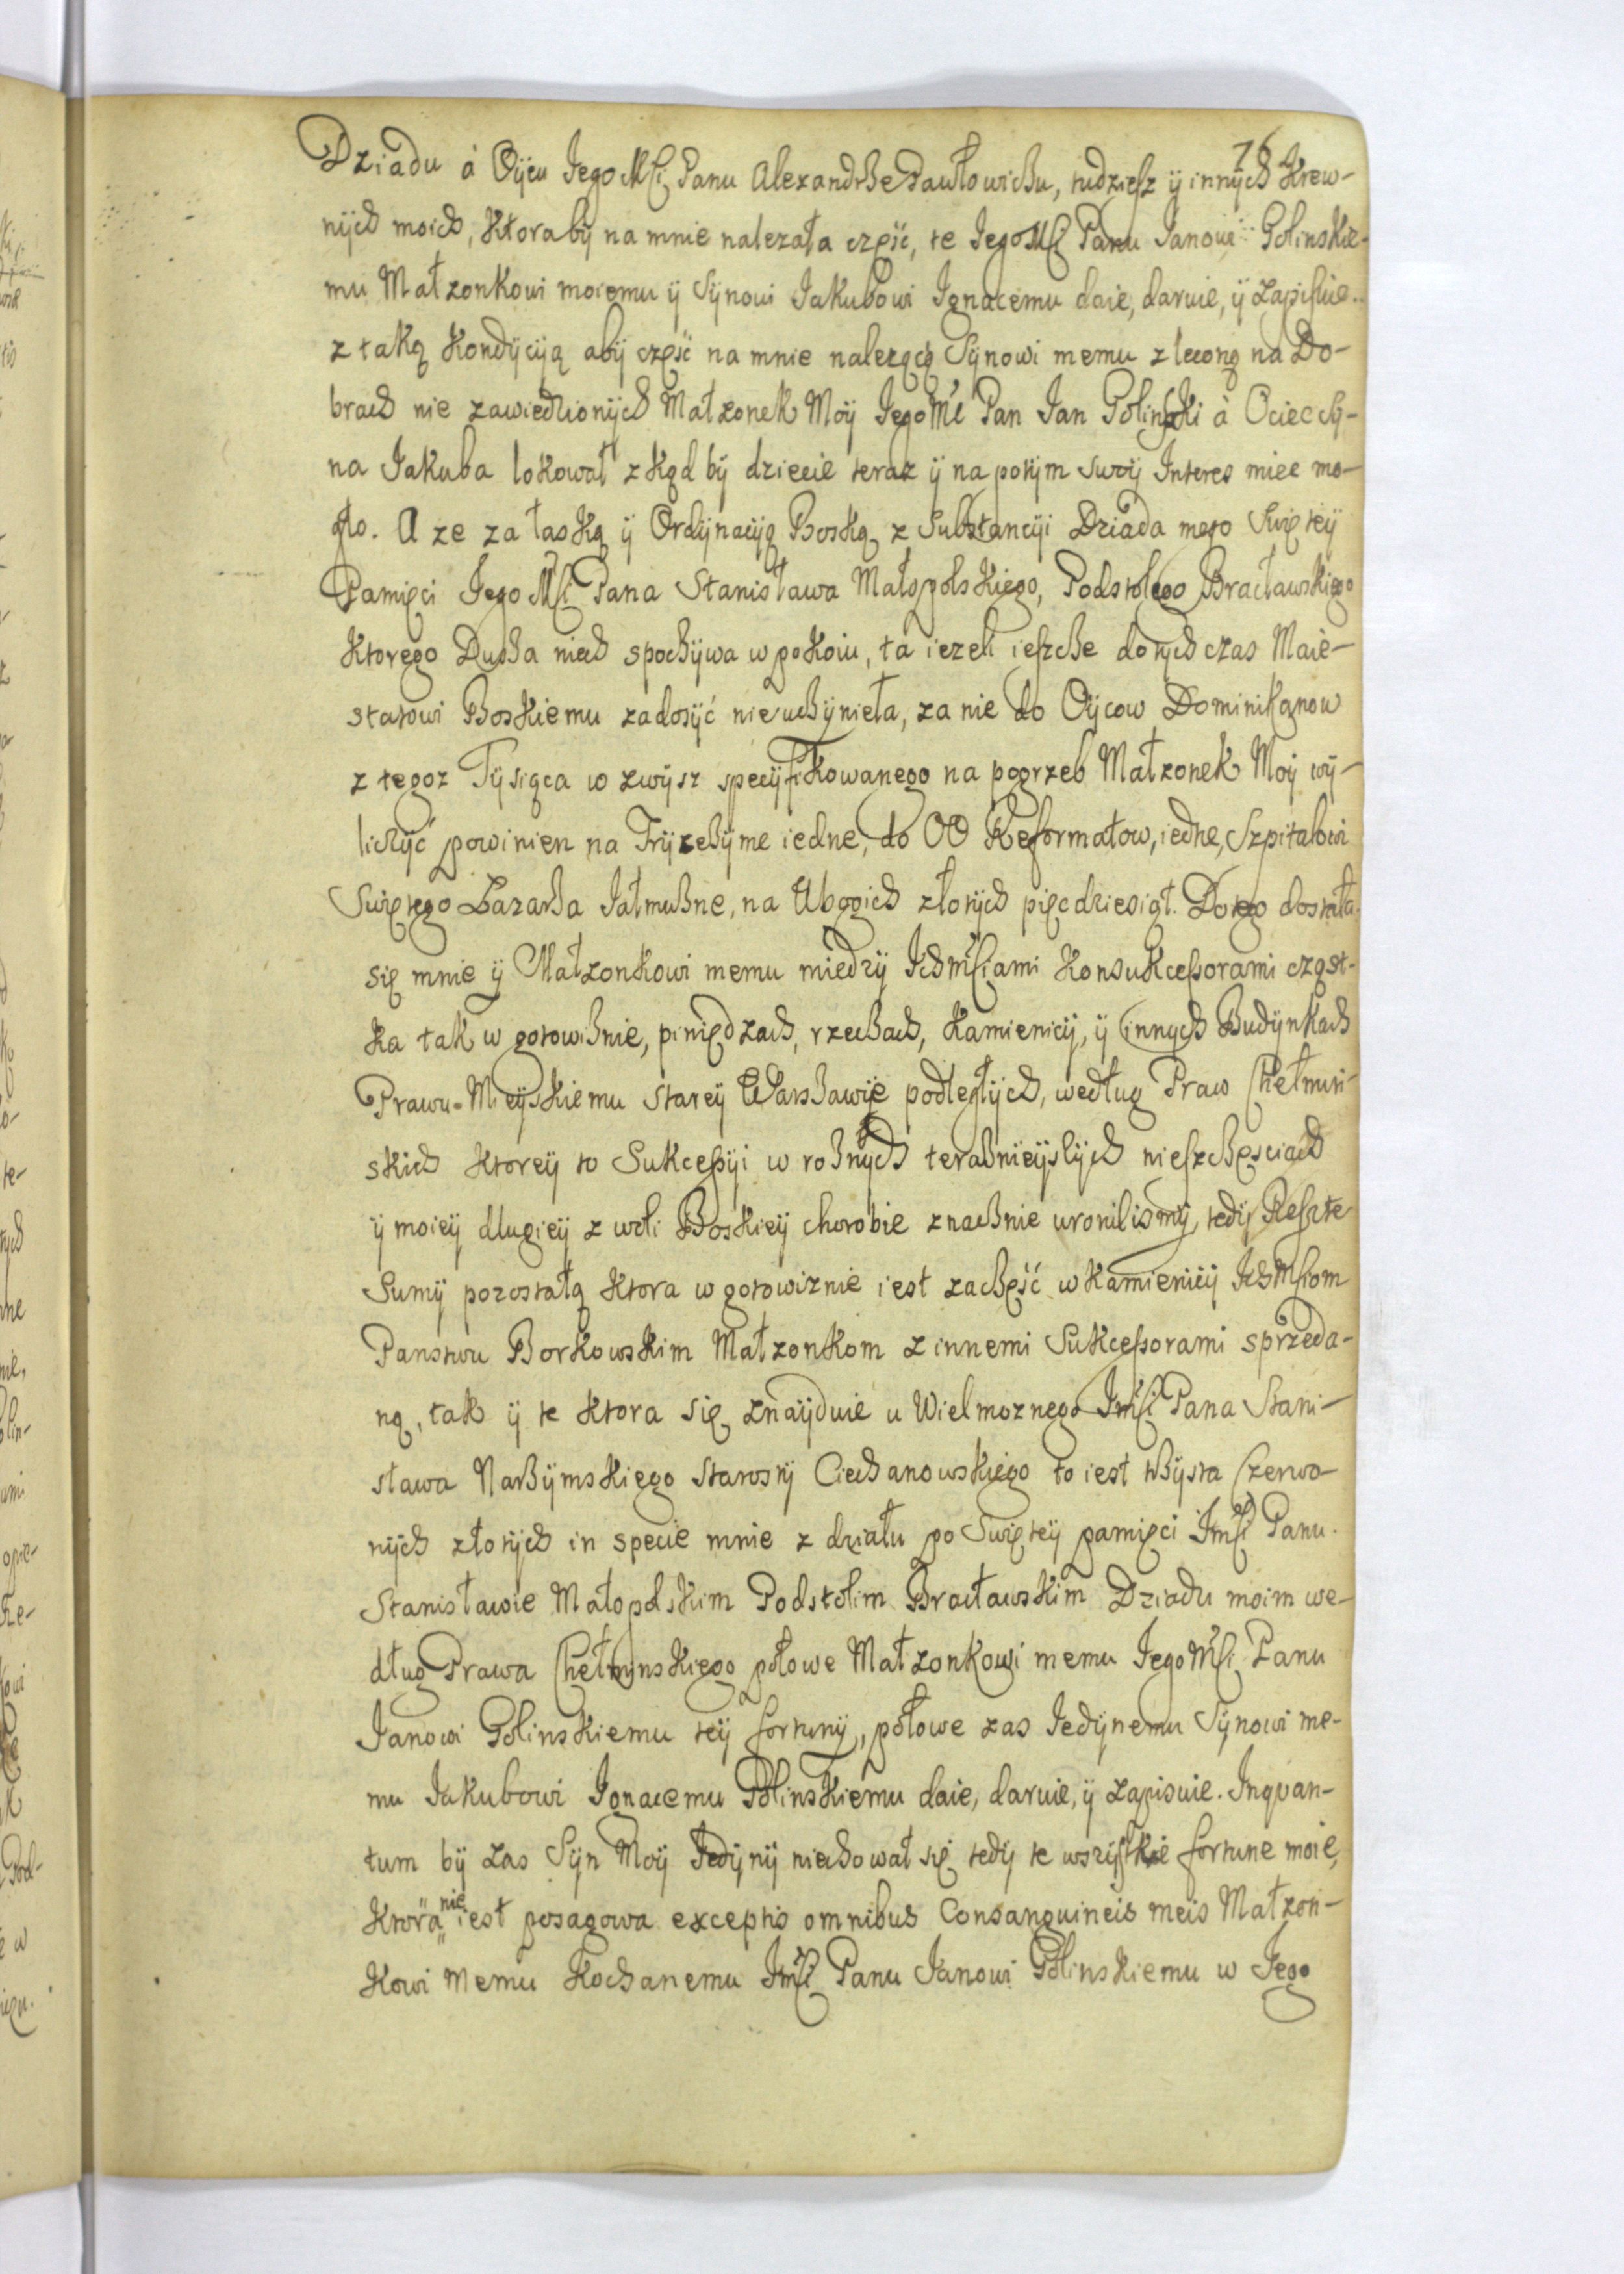 76
Dziadu á Oÿcu Jego Mści Panu Alexandrze Pawłowiczu, tudziesz ÿ innÿch Krew-
nÿch moich, Ktorabÿ na mnie nalezała częśc, te Jego Mści Panu Janowi Golinskie-
mu Małzonkowi moiemu ÿ Sÿnowi Jakubowi Ignacemu daie, daruie, ÿ zapisuie
z taką Kondÿcÿą abÿ częśc na mnie nalezącą Sÿnowi memu zleconą na Do-
brach nie zawiedzionÿch Małzonek Moÿ Jego Mć Pan Jan Golinski á Ociec Sÿ-
na Jakuba lokował z kąd bÿ dziecie teraz ÿ na potÿm swoÿ Interes miec mo-
gło. A ze za łaską ÿ Ordÿnacÿą Boską z Substancÿi Dziada mego Swięteÿ
Pamięci Jego Mści Pana Stanisława Małopolskiego, Podstolego Bracławskiego
Ktorego Dusza niech spoczÿwa w pokoiu, ta iezeli ieszcze dotÿchczas Maie-
statowi Boskiemu zadosÿć nieuczÿnieła, za nie do Oÿcow Dominikanow
z tegoz Tÿsiąca w zwÿsz specÿfikowanego na pogrzeb Małzonek Moÿ wÿ-
liczÿć powinien na Trÿcezÿme iedne, do OO Reformatow, iedne, Szpitalowi
Swiętego Łazarza Jałmuzne, na Ubogich złotÿch pięcdziesiąt. Do tego dostała
się mnie ÿ Małzonkowi memu miedzÿ Ichmściami Konsukcessorami cząst-
ka tak w gotowiznie, piniędzach, rzeczach, Kamienicÿ, ÿ innÿch Budÿnkach
Prawu Mieÿskiemu Stareÿ Warszawie podległÿch, według Praw Chełmin-
skich Ktoreÿ to Sukcessÿi w roznÿch terazniejszÿch nieszczęsciach
ÿ moieÿ dlugieÿ z woli Boskieÿ chorobie znacznie uronilismÿ, tedÿ Reszte
Sumÿ pozostałą Ktora w gotowiznie iest za częśc w Kamienicÿ Ichmściom
Panstwu Borkowskim Małzonkom z innemi Sukcessorami sprzeda-
ną, tak ÿ te Ktora się znaÿduie u Wielmoznego Jmści Pana Stani-
sława Narzÿmskiego Starostÿ Ciechanowskiego to iest trzÿsta Czerwo-
nÿch złotÿch in specie mnie z działu po Swięteÿ pamięci Jmści Panu
Stanisławie Małopolskim Podstolim Bracławskim Dziadu moim we-
dług Prawa Chełmnskiego połowe Małzonkowi memu Jego Mści Panu
Janowi Golinskiemu teÿ fortunÿ, połowe zas Jedÿnemu Sÿnowi me-
mu Jakubowi Ignacemu Golinskiemu daie, daruie, ÿ zapisuie. Inqvan-
tum bÿ zas Sÿn Moÿ Jedÿnÿ niechował się tedÿ te wszÿstkie fortune moie,
Ktora nie iest posagowa exceptis omnibus Consanguineis meis Małzon-
kowi memu Kochanemu Jmści Panu Janowi Golinskiemu w Jego